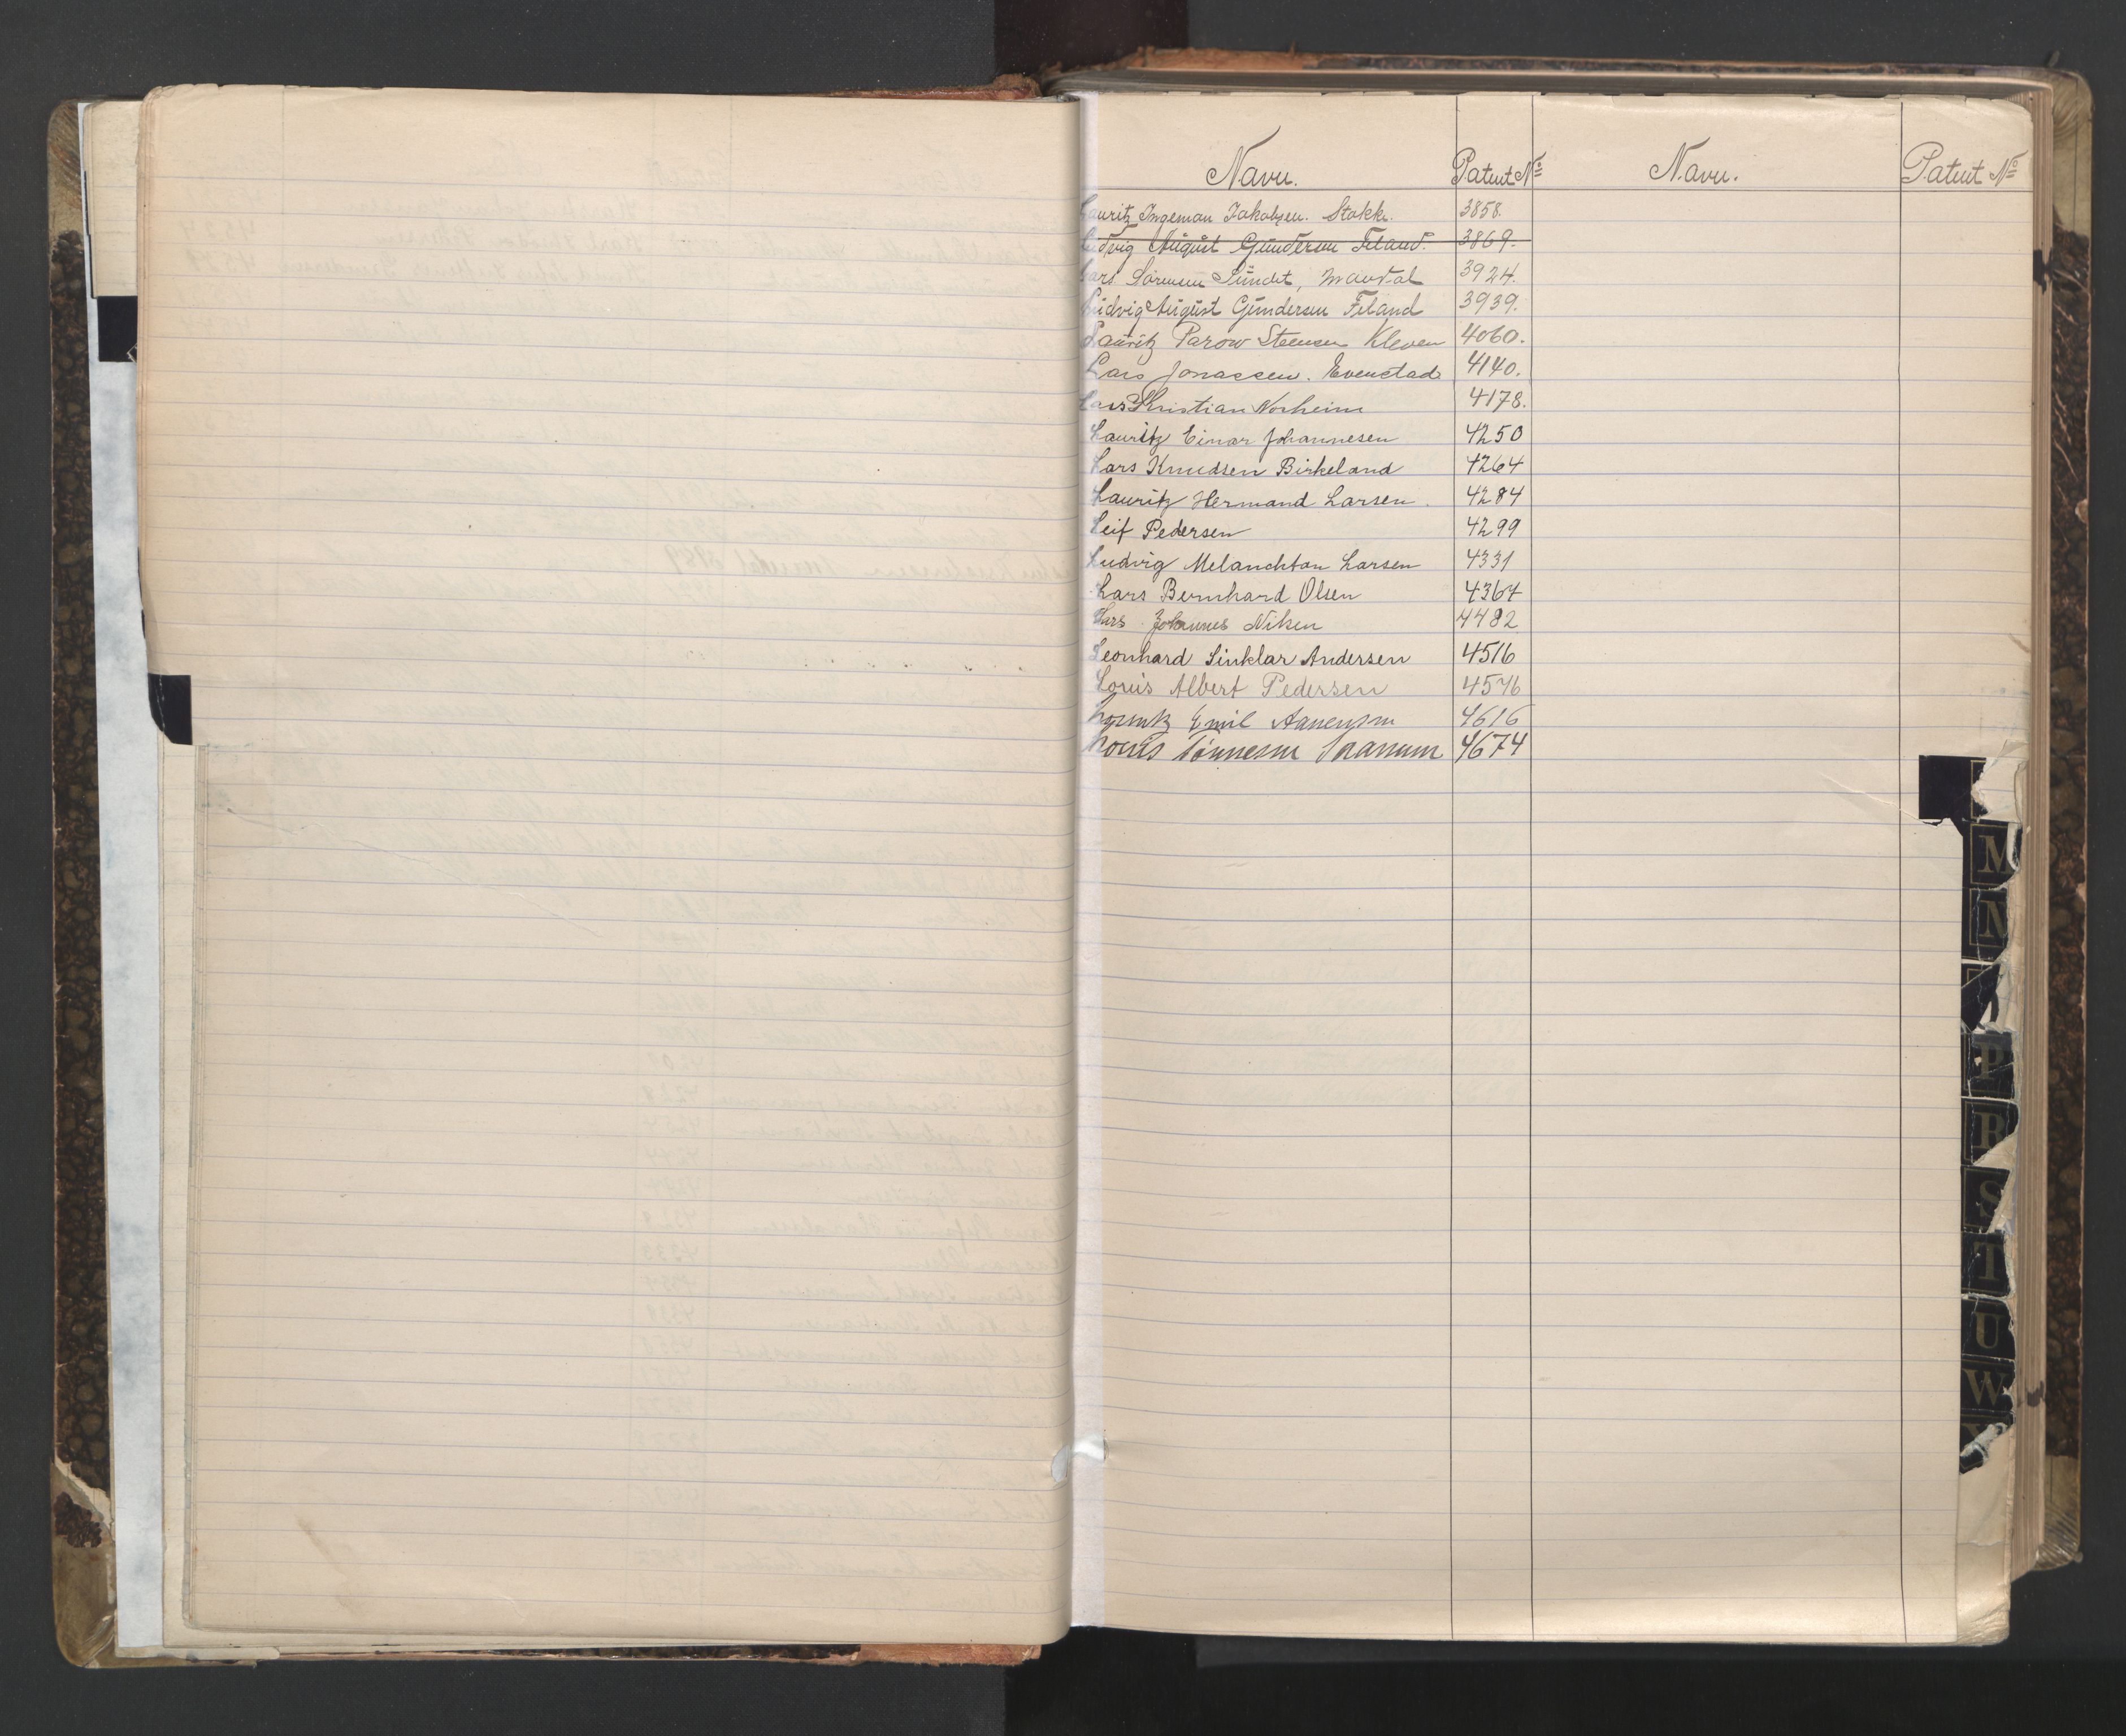 Navn. Patent № Navn. Patent №
Lauritz Ingeman Jakobsen. Stokke. 3858.
Ludvig August Gundersen Feland. 3869.
Lars Sørensen Sundet, Mandal 3924.
Ludvig August Gundersen Feland 3939.
Lauritz Parow Steensen Kleven 4060.
Lars Jonassen. Evenstad 4140.
Lars Kristian Norheim 4178.
Lauritz Einar Johannesen 4250
Lars Knudsen Birkeland 4264
Lauritz Hermand Larsen. 4284
Leif Pedersen 4299
Ludvig Melanchton Larsen 4331
Lars Bernhard Olsen 4364
Lars Johannes Niken 4482
Leonhard Sinklar Andersen 4516
Louis Albert Pedersen 4546
Emil Aanensen 4616
Louis Tønnesen 4674
M
N
O
P
R
S
T
U
W